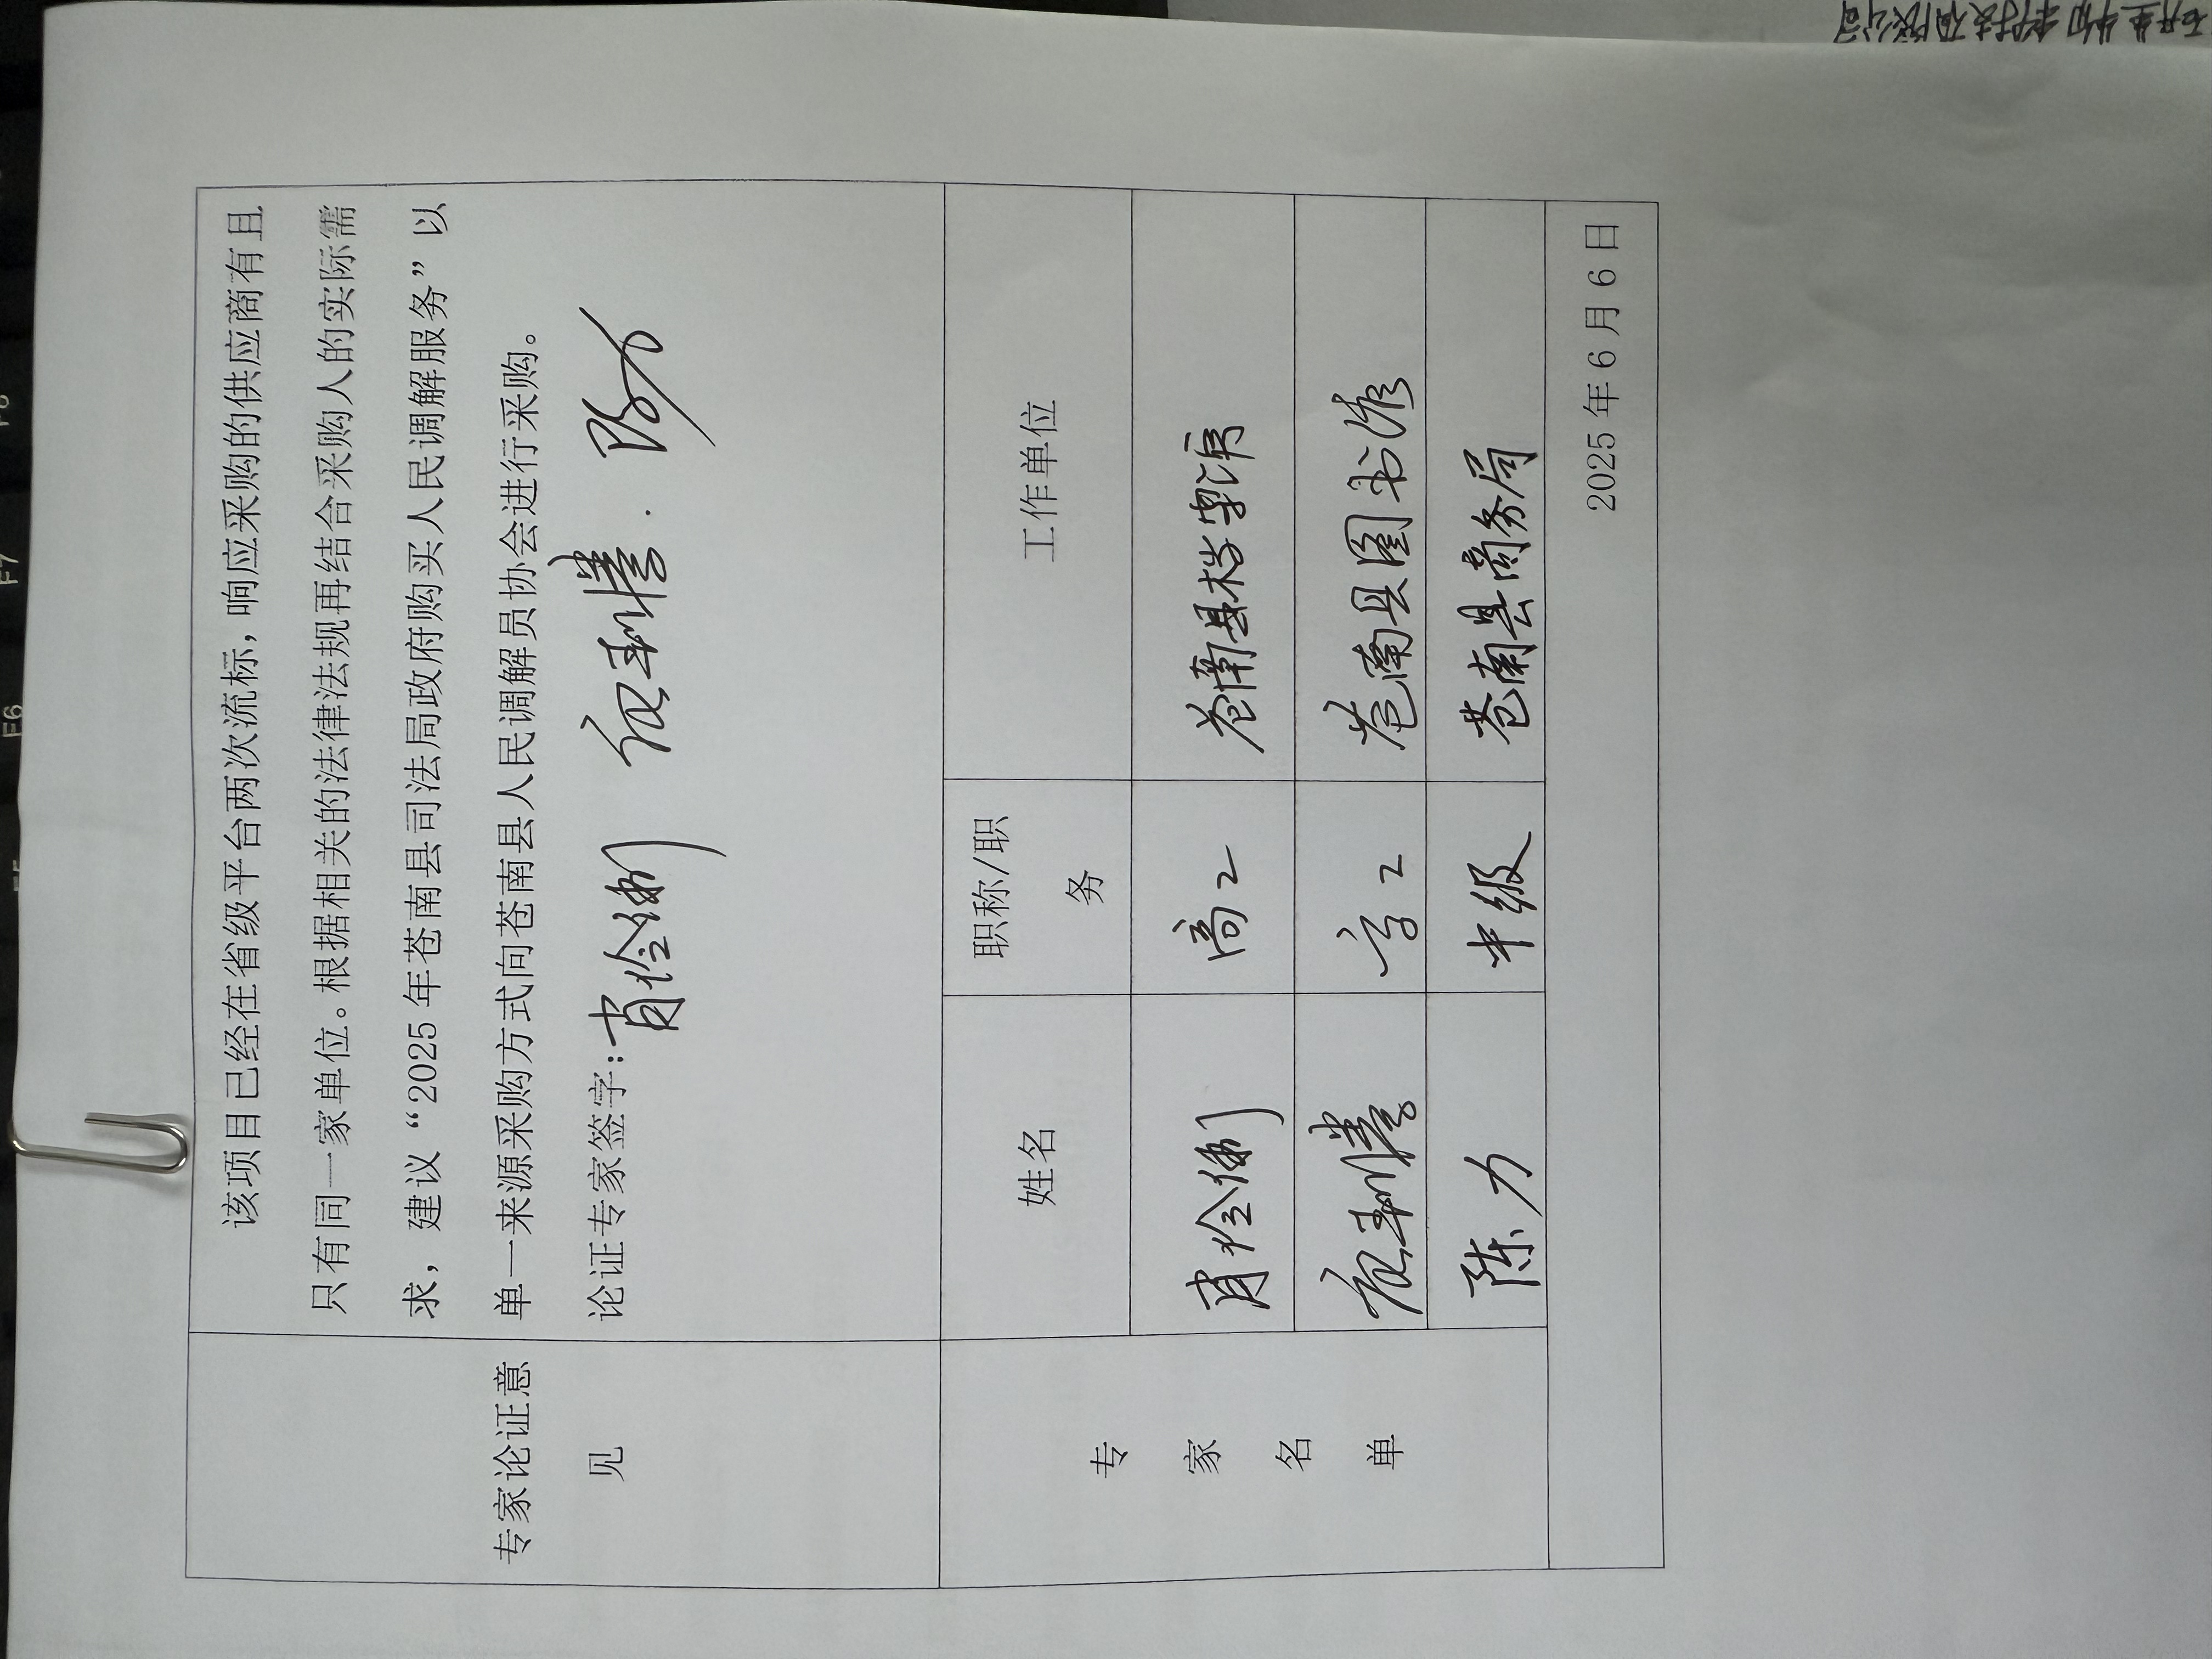 该项目已经在省级平台两次流标，响应采购的供应商有且
只有同一家单位。根据相关的法律法规再结合采购人的实际需
求，建议“2025年苍南县司法局政府购买人民调解服务”以
单一来源采购方式向苍南县人民调解员协会进行采购。
专家论证意
见
论证专家签字：肖伶俐
专
家
名
单
姓名
职称/职
务
工作单位
肖伶俐
高工
苍南县
高工
苍南县图书馆
陈力
中级
苍南县商务局
2025年6月6日
F6
F7